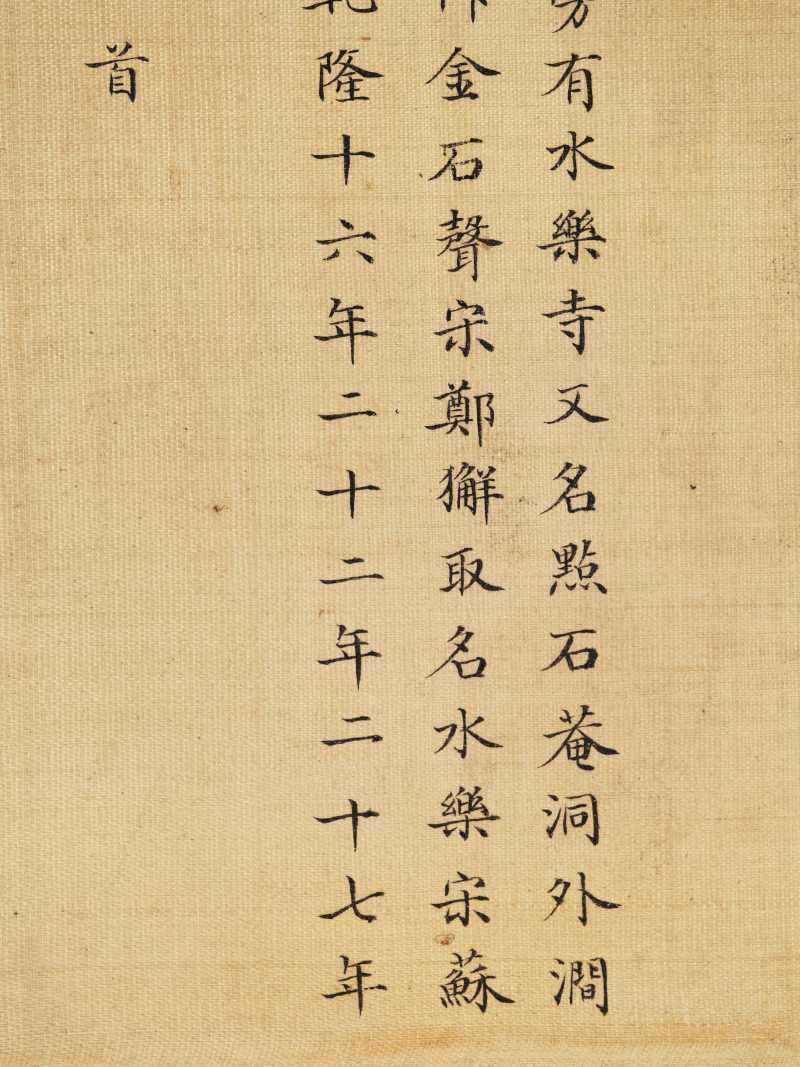 旁有水樂寺又名點石菴洞外澗
作金石聲宋鄭獬取名水樂宋蘇
乾隆十六年二十二年二十七年
首